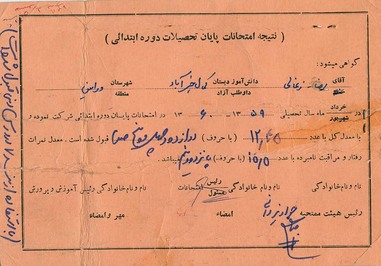 ( نتیجه امتحانات پایان تحصیلات دوره ابتدائی )
گواهی میشود:
آقای رضا زغالی دانش‌آموز دبستان خرم‌آباد شهرستان ورامین
داوطلب آزاد منطقه
خرداد
در شهریور ماه سال تحصیلی ۵۹ - ۱۳ ۶۰ - ۱۳ در امتحانات پایان دوره ابتدائی شرکت نموده و
با معدل کل با عدد ۱۲,۴۵ (با حروف) دوازده و چهل و پنج صدم قبول شده است. معدل نمرات
رفتار و مراقبت نامبرده با عدد ۱۵,۵ (با حروف) پانزده و نیم میباشد.
نام و نام خانوادگی نام و نام خانوادگی رئیس مسئول امتحانات نام و نام خانوادگی رئیس آموزش و پرورش
رئیس هیئت ممتحنه امضاء مهر و امضاء